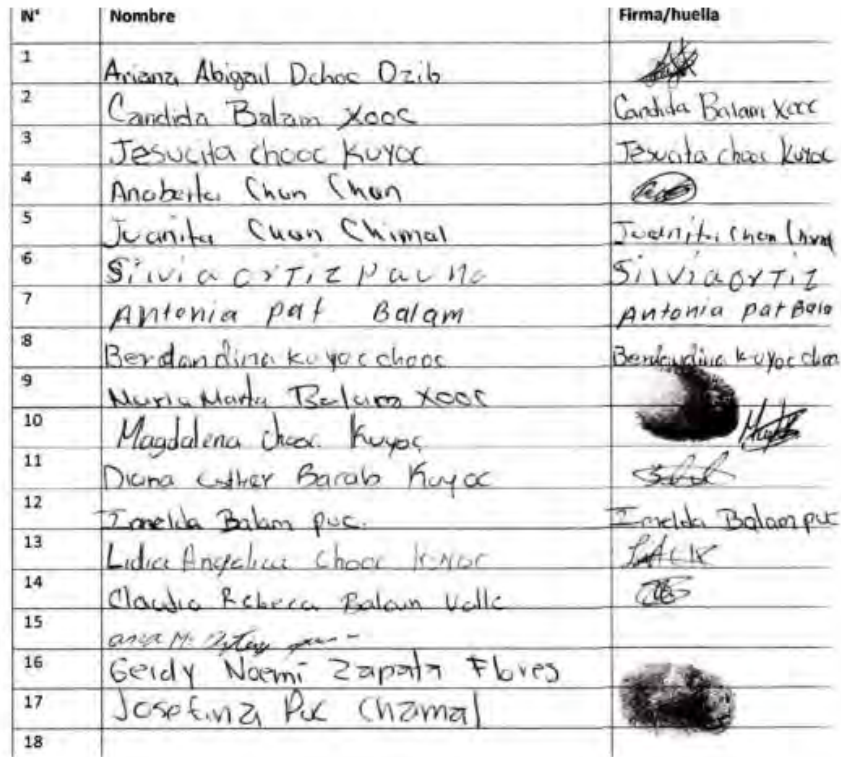 N° Nombre Firma/huella
1 Ariana Abigail Dchoc Dzib
2 Candida Balam Xooc Candida Balam Xooc
3 Jesucita chooc Kuyoc Jesucita chooc Kuyoc
4 Anaberta Chan Chan
5 Juanita Chan Chimal Juanita Chan
6 Silvia Ortiz Silvia Ortiz
7 Antonia pat Balam Antonia pat Bala
8 Berdandina kuyoc chooc Berdandina kuyoc choo
9 Maria Marta Balam xooc
10 Magdalena chooc Kuyoc
11 Diana esther Barab Kuyoc
12 Imelda Balam puc. Imelda Balam puc
13 Lidia Angelica chooc LACK
14 Claudia Rebeca Balam Valle
15
16 Geidy Noemi Zapata Flores
17 Josefina Puc Chamal
18